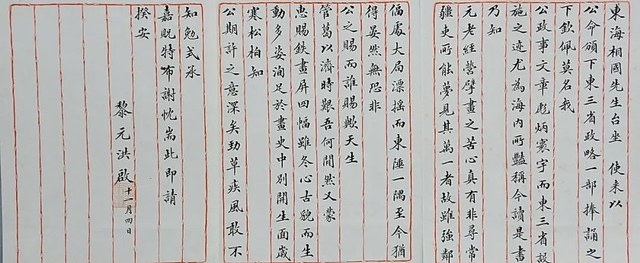 東海相國先生台坐　使来以
公命頒下東三省政略一部捧誦之
下欽佩莫名我
公政事文章彪炳寰宇而東三省設
施之迹尤為海内所豔稱今讀是書
乃知
元老經營擘畫之苦心真有非尋常
疆吏所能夢見其萬一者故雖強鄰
偪處大局漂搖而東陲一隅至今猶
得晏然無恐非
公之賜而誰賜歟天生
管葛以濟時艱吾何間然又蒙
惠賜鉄畫屏四幅雖冬心古貌而生
動多姿洵足於畫史中別開生面歲
寒松柏知
公期許之意深矣勁草疾風敢不
知勉式承
嘉貺特布謝忱耑此即請
揆安
黎元洪啟 十一月四日